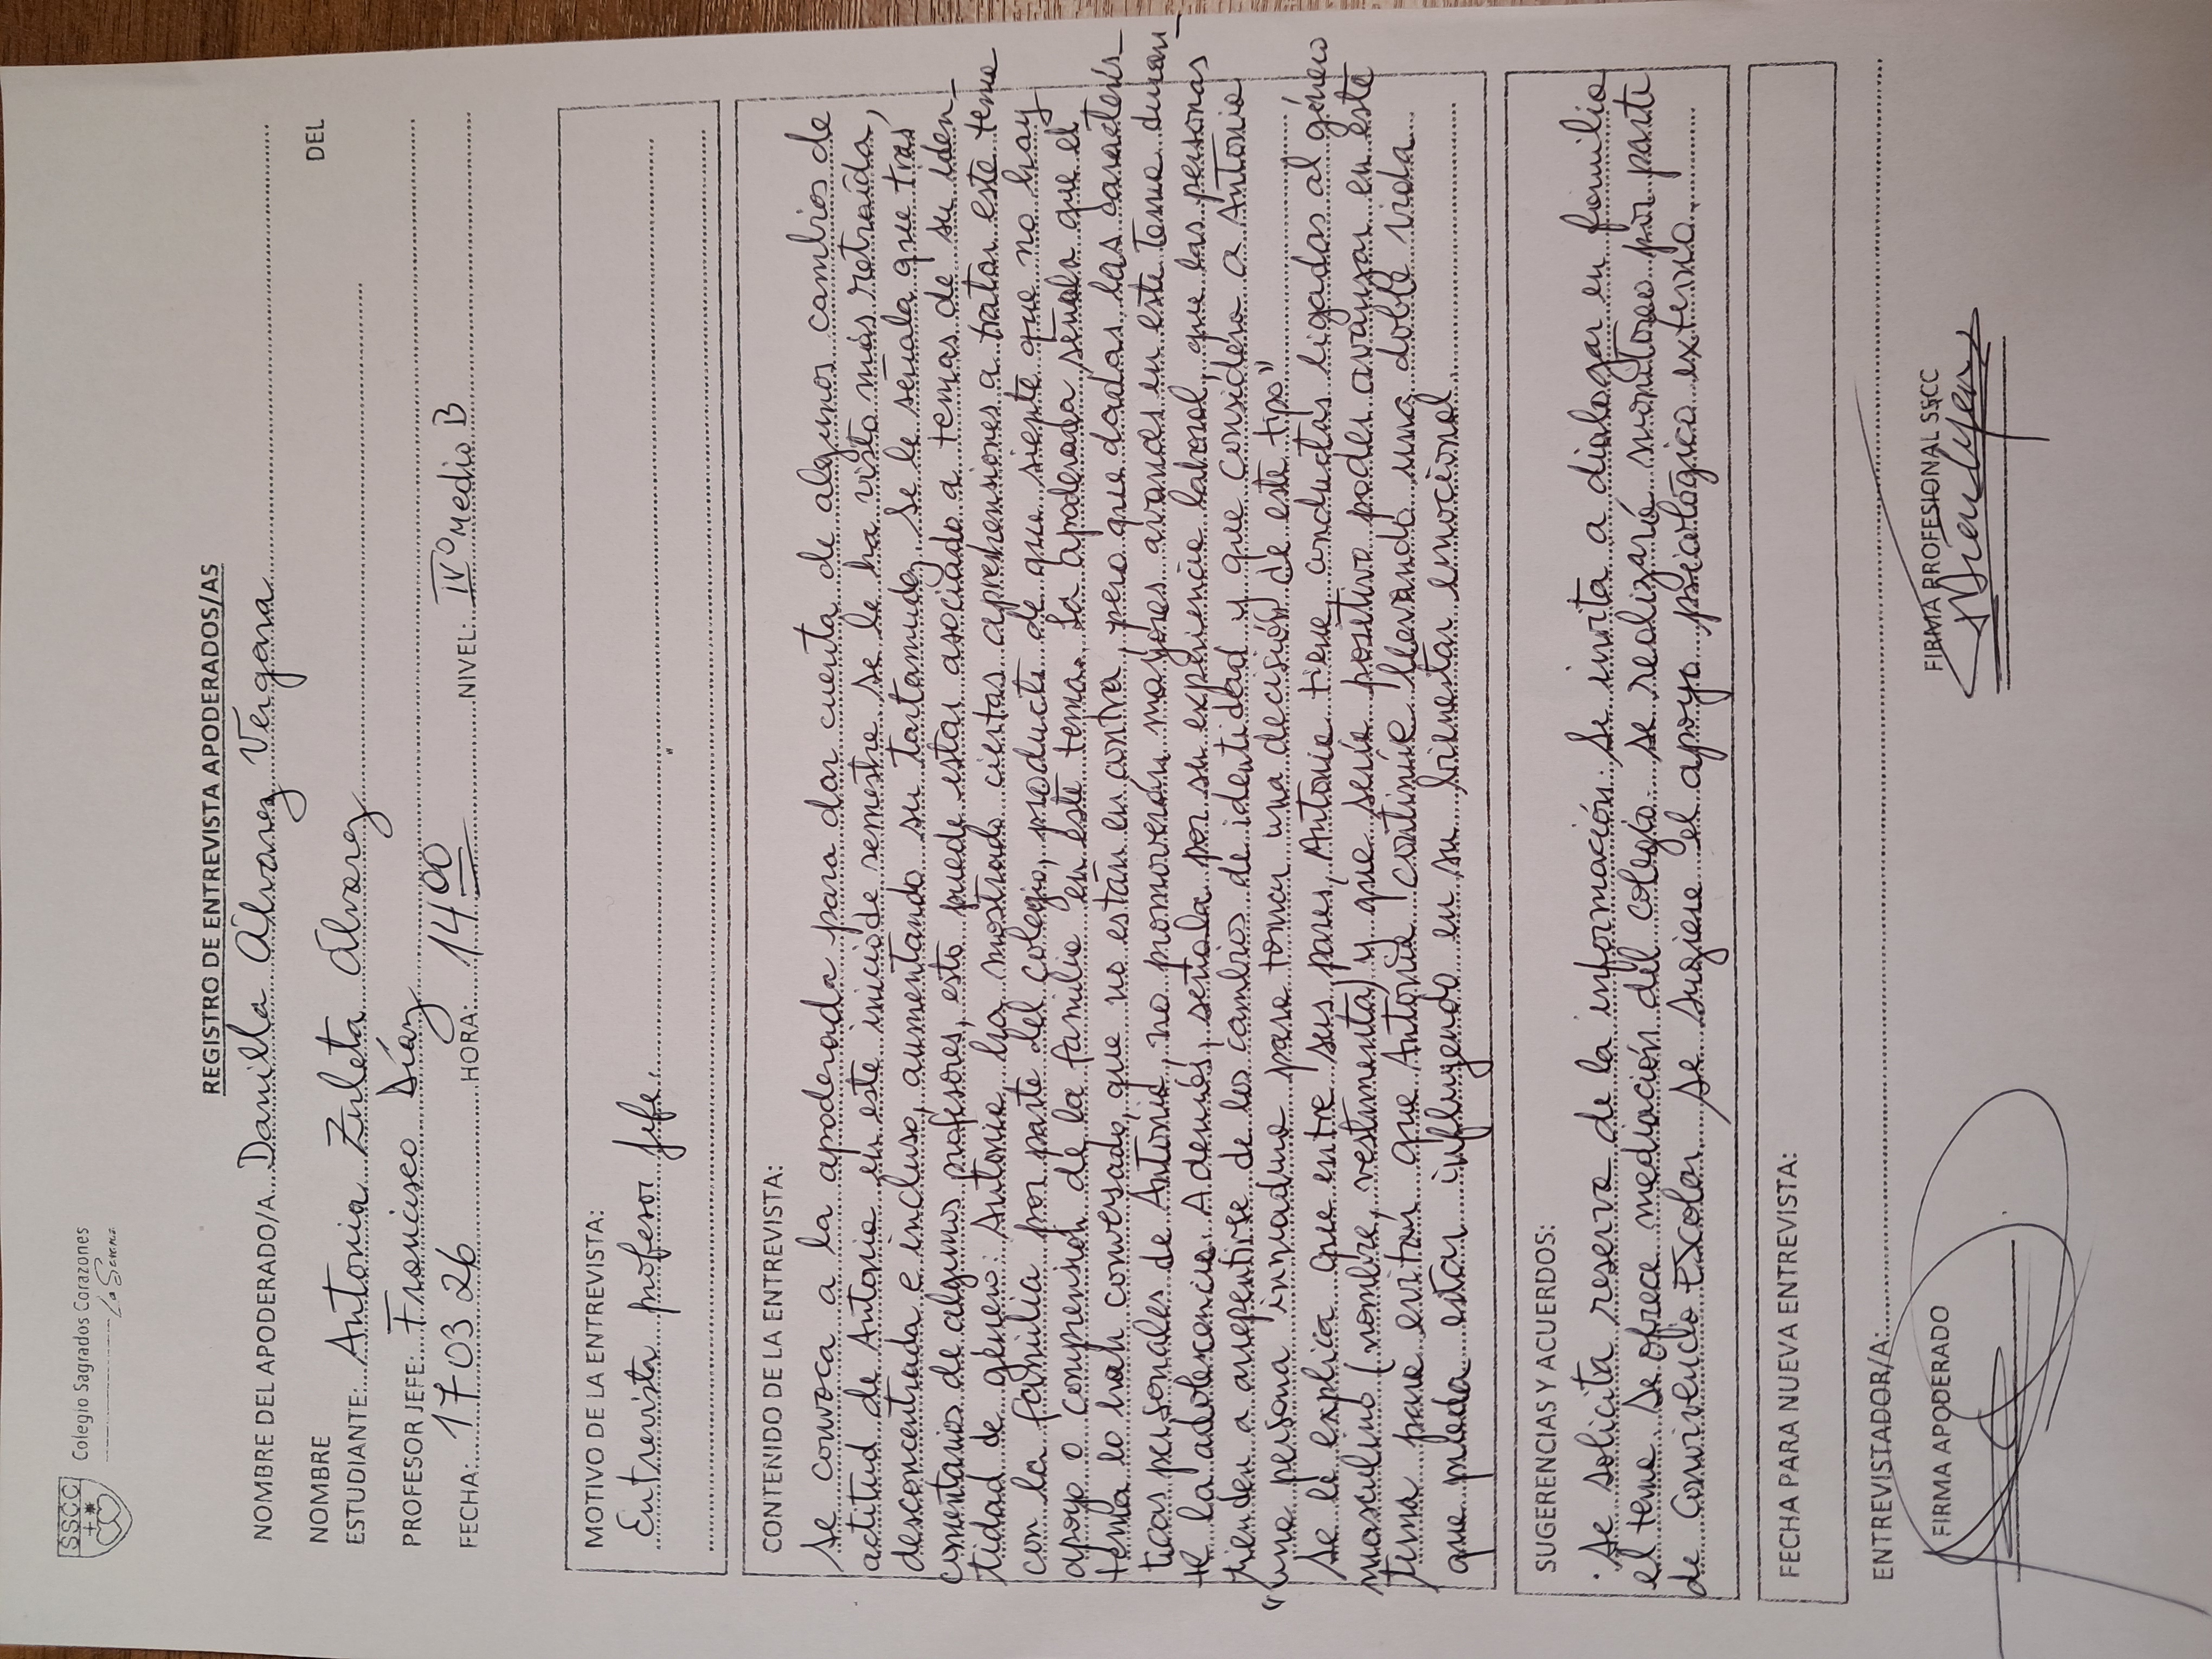 SSCC
Colegio Sagrados Corazones
La Serena
REGISTRO DE ENTREVISTA APODERADOS/AS
NOMBRE DEL APODERADO/A Danilla Álvarez Vergara
NOMBRE DEL
ESTUDIANTE: Antonia Zuleta Álvarez
PROFESOR JEFE: Francisco Díaz
FECHA: 17 03 26 HORA: 14 00 NIVEL: IVº medio B
MOTIVO DE LA ENTREVISTA:
Entrevista profesor jefe.
CONTENIDO DE LA ENTREVISTA:
Se convoca a la apoderada para dar cuenta de algunos cambios de
actitud de Antonia en este inicio de semestre se le ha visto más retraída,
desconcentrada e incluso, aumentando su tartamudez. Se le señala que tras
comentarios de algunos profesores, esto puede estar asociado a temas de su iden-
tidad de género. Antonia ha mostrado ciertas aprehensiones a tratar este tema
con la familia por parte del colegio, producto de que siente que no hay
apoyo o comprensión de la familia en este tema. La apoderada señala que el
tema lo han conversado, que no están en contra, pero que dadas las caracterís-
ticas personales de Antonia, no promoverán mayores avances en este tema duran-
te la adolescencia. Además, señala por su experiencia laboral, que las personas
tienden a arrepentirse de los cambios de identidad y que considera a Antonia
"una persona inmadura para tomar una decisión de este tipo"
Se le explica que entre sus pares, Antonia tiene conductas ligadas al género
masculino (nombre, vestimenta) y que sería positivo poder avanzar en este
tema para evitar que Antonia continúe llevando una doble vida
que pueda estar influyendo en su bienestar emocional
SUGERENCIAS Y ACUERDOS:
· Se solicita reserva de la información. Se invita a dialogar en familia
el tema. Se ofrece mediación del colegio. Se realizará monitoreo por parte
de Convivencia Escolar. Se sugiere el apoyo psicológico externo.
FECHA PARA NUEVA ENTREVISTA:
ENTREVISTADOR/A:
FIRMA APODERADO FIRMA PROFESIONAL SSCC